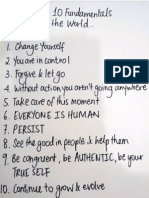 10 Fundamentals
the World...
1. Change Yourself
2. You are in control
3. Forgive & let go
4. Without action you aren't going anywhere
5. Take care of this moment
6. EVERYONE IS HUMAN
7. PERSIST
8. See the good in people & help them
9. Be congruent, be AUTHENTIC, be your
TRUE SELF
10. Continue to grow & evolve